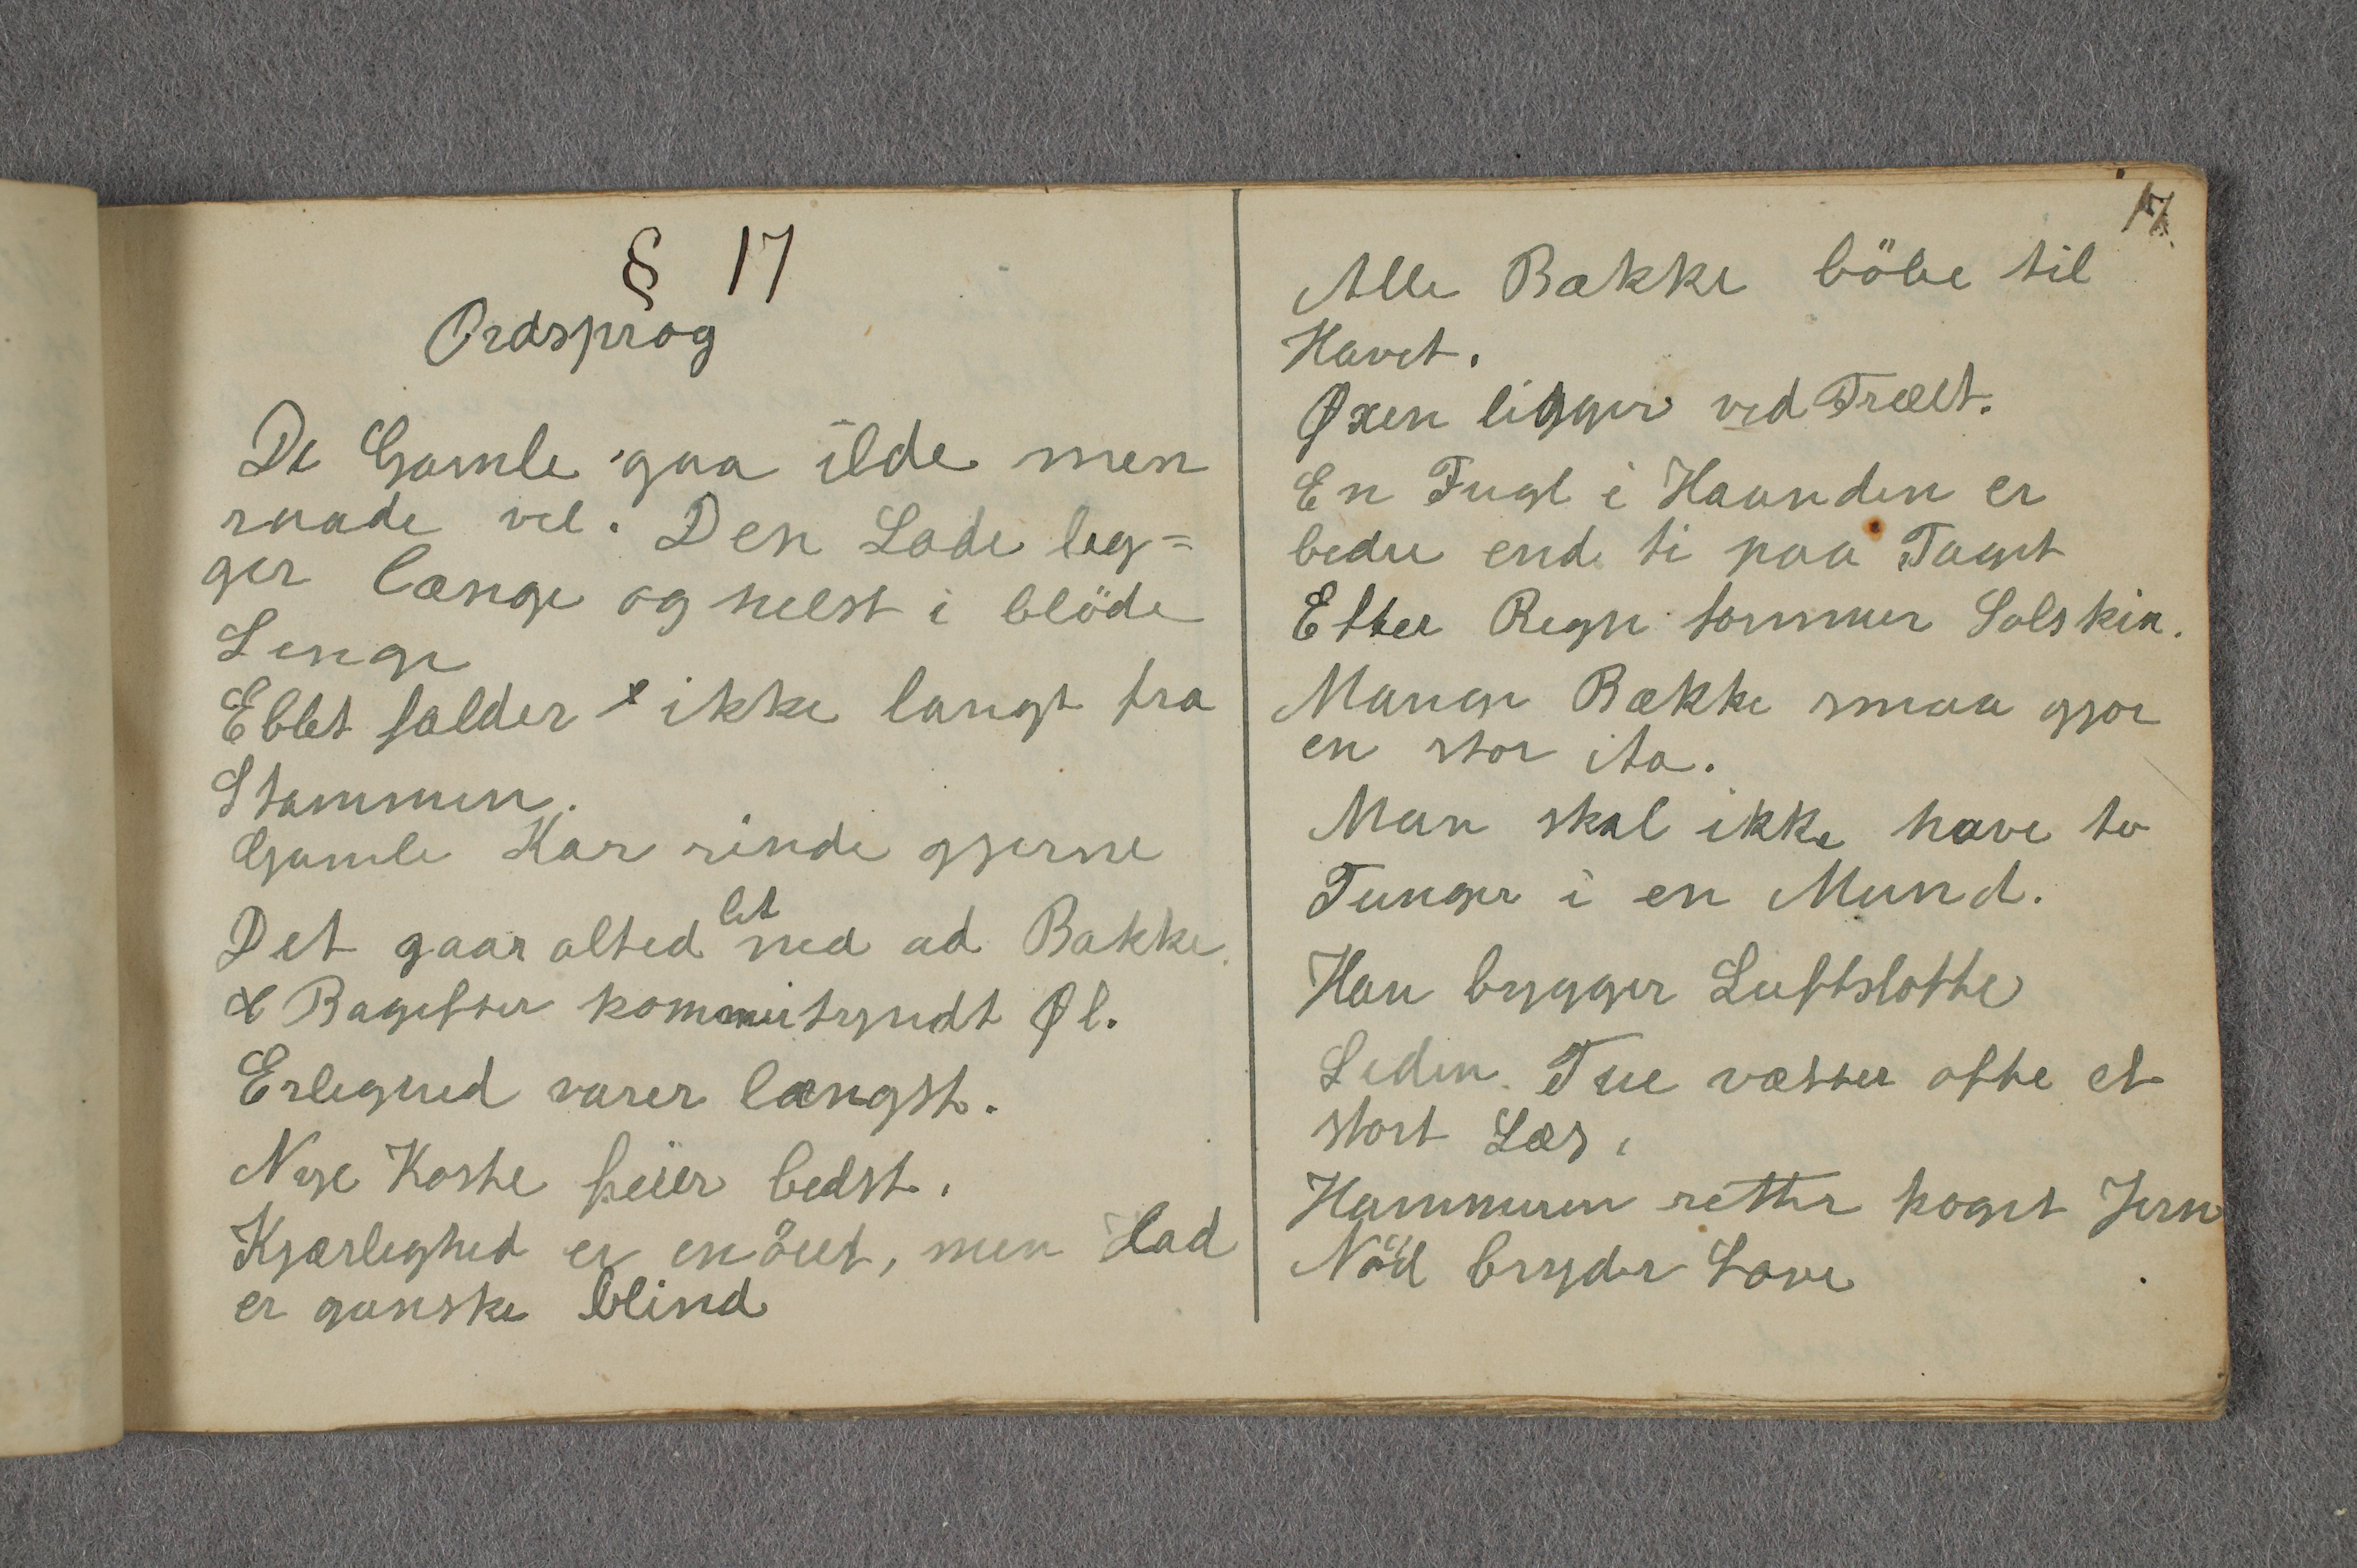 § 17
Ordsprog
De Gamle gaa ilde men
raade vel. Den Lade leg=
ger længe og helst i blöde
Senge
Eblet falder ikke langt fra
Stammen.
Gamle Kar rinde gjerne
Det gaar alted let ned ad Bakke.
Bagefter kommer tyndt Øl.
Erleghed varer længst.
Nye Koste feier bedst.
Kjærleghed er enöiet, men Had
er ganske blind
17.
Alle Bække löbe til
Havet.
Øxen ligger ved Træet.
En Fugl i Haanden er
bedre end ti paa Taget
Efter Regn kommer Solskin.
Mange Bække smaa gjør
en stor
Man skal ikke have to
Tunger i en Mund.
Han bygger Luftslotte
Leden Tue vælter ofte et
stort Læs.
Hammeren retter kroget Jern
Nöd bryder Love